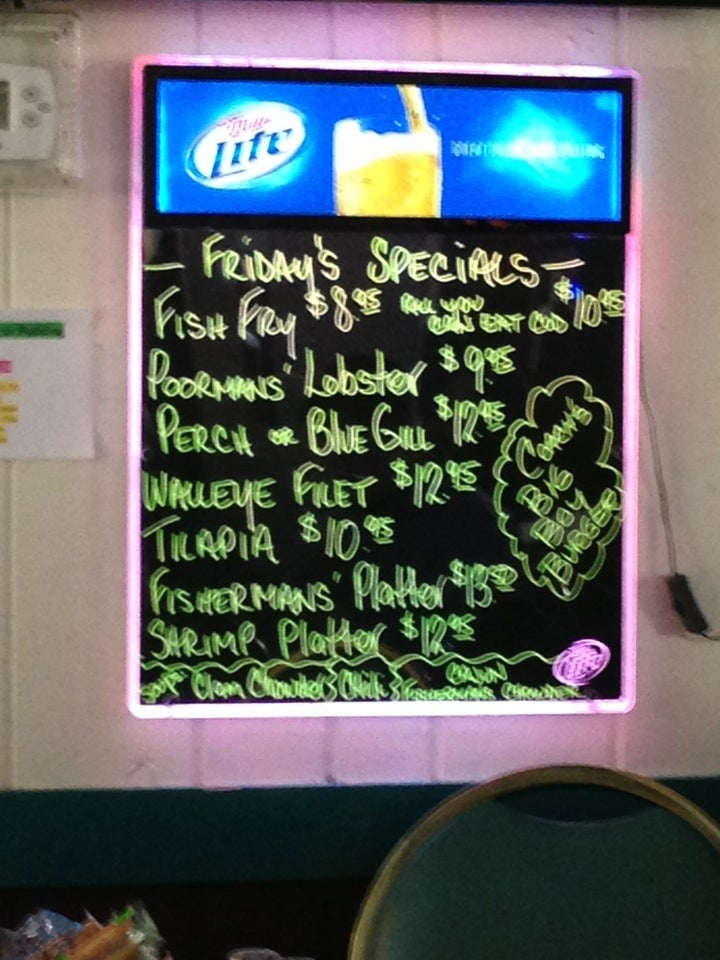 Miller
Lite
- FRIDAY'S SPECIALS -
FISH FRY $8.95 ALL YOU CAN EAT COD $10.95
POORMANS' Lobster $9.95
PERCH OR BLUE GILL $12.95
WALLEYE FILET $12.95
TILAPIA $10.95
FISHERMANS' Platter $13.50
SHRIMP Platter $12.95
BIG
BOY
BURGER
Clam Chowder Chili CAJUN
FISHERMANS CHOWDER
Lite